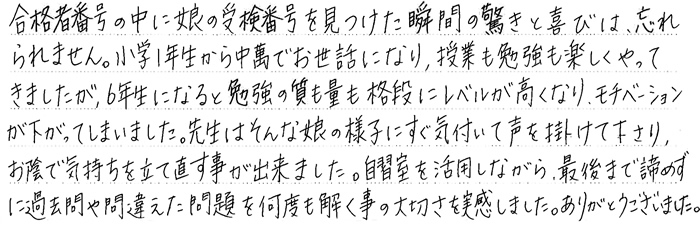 合格者番号の中に娘の受検番号を見つけた瞬間の驚きと喜びは、忘れ
られません。小学1年生から中萬でお世話になり、授業も勉強も楽しくやって
きましたが、6年生になると勉強の質も量も格段にレベルが高くなり、モチベーション
が下がってしまいました。先生はそんな娘の様子にすぐ気付いて声を掛けて下さり、
お陰で気持ちを立て直す事が出来ました。自習室を活用しながら、最後まで諦めず
に過去問や間違えた問題を何度も解く事の大切さを実感しました。ありがとうございました。